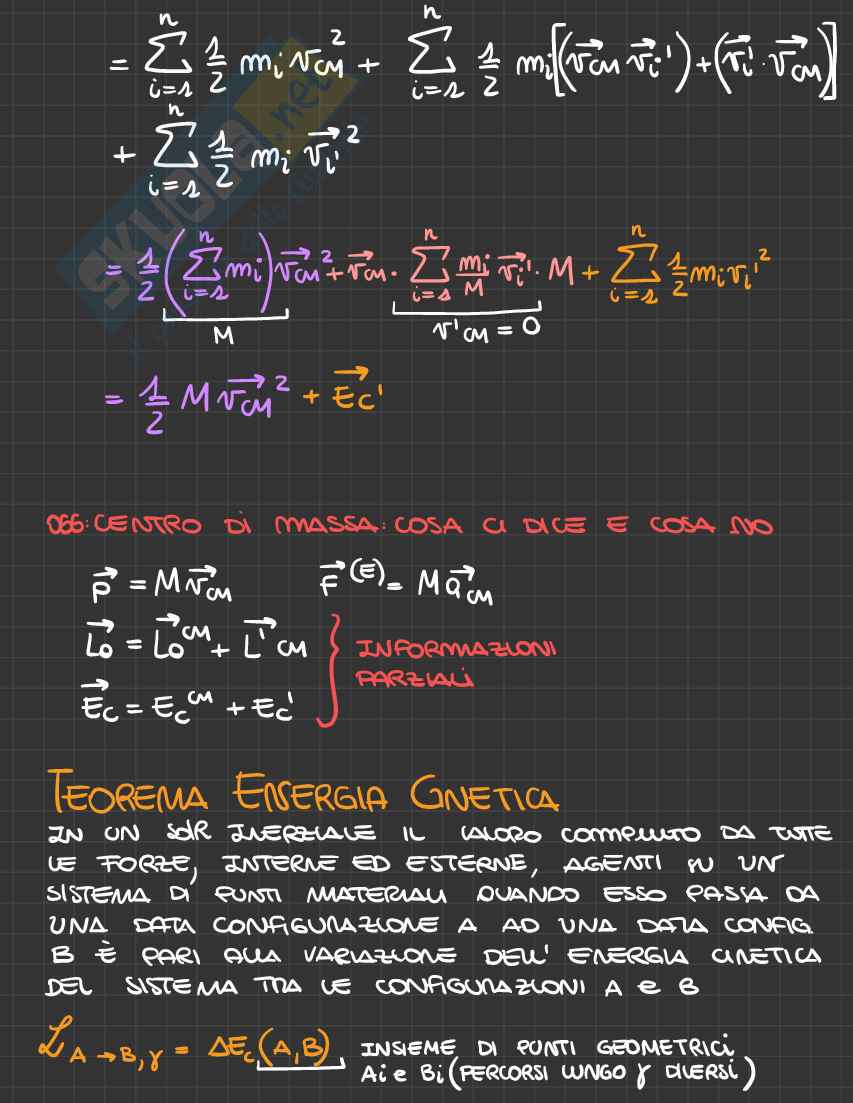 = \sum_{i=1}^{n} \frac{1}{2} m_i v_{CM}^2 + \sum_{i=1}^{n} \frac{1}{2} m_i [(\vec{v_{CM}} \vec{v_i}') + (\vec{v_i}' \cdot \vec{v_{CM}})]
+ \sum_{i=1}^{n} \frac{1}{2} m_i \vec{v_i'}^2
= \frac{1}{2} (\sum_{i=1}^{n} m_i) \vec{v_{CM}}^2 + \vec{v_{CM}} \cdot \sum_{i=1}^{n} \frac{m_i}{M} \vec{v_i}' \cdot M + \sum_{i=1}^{n} \frac{1}{2} m_i v_i'^2
M v'_{CM} = 0
= \frac{1}{2} M \vec{v_{CM}}^2 + \vec{E_C}'
066: CENTRO DI MASSA: COSA CI DICE E COSA NO
\vec{p} = M \vec{v_{CM}} \vec{F}^{(E)} = M \vec{a_{CM}}
\vec{L_O} = \vec{L_O}^{CM} + \vec{L'}_{CM} INFORMAZIONI
PARZIALI
\vec{E_C} = E_C^{CM} + E_C'
TEOREMA ENERGIA CINETICA
IN UN SDR INERZIALE IL LAVORO COMPIUTO DA TUTTE
LE FORZE, INTERNE ED ESTERNE, AGENTI SU UN
SISTEMA DI PUNTI MATERIALI QUANDO ESSO PASSA DA
UNA DATA CONFIGURAZIONE A AD UNA DATA CONFIG.
B È PARI ALLA VARIAZIONE DELL' ENERGIA CINETICA
DEL SISTEMA TRA LE CONFIGURAZIONI A e B
\mathcal{L}_{A→B, γ} = ΔE_C (A,B) INSIEME DI PUNTI GEOMETRICI
Ai e Bi (PERCORSI LUNGO γ DIVERSI)
SKUOLA.net